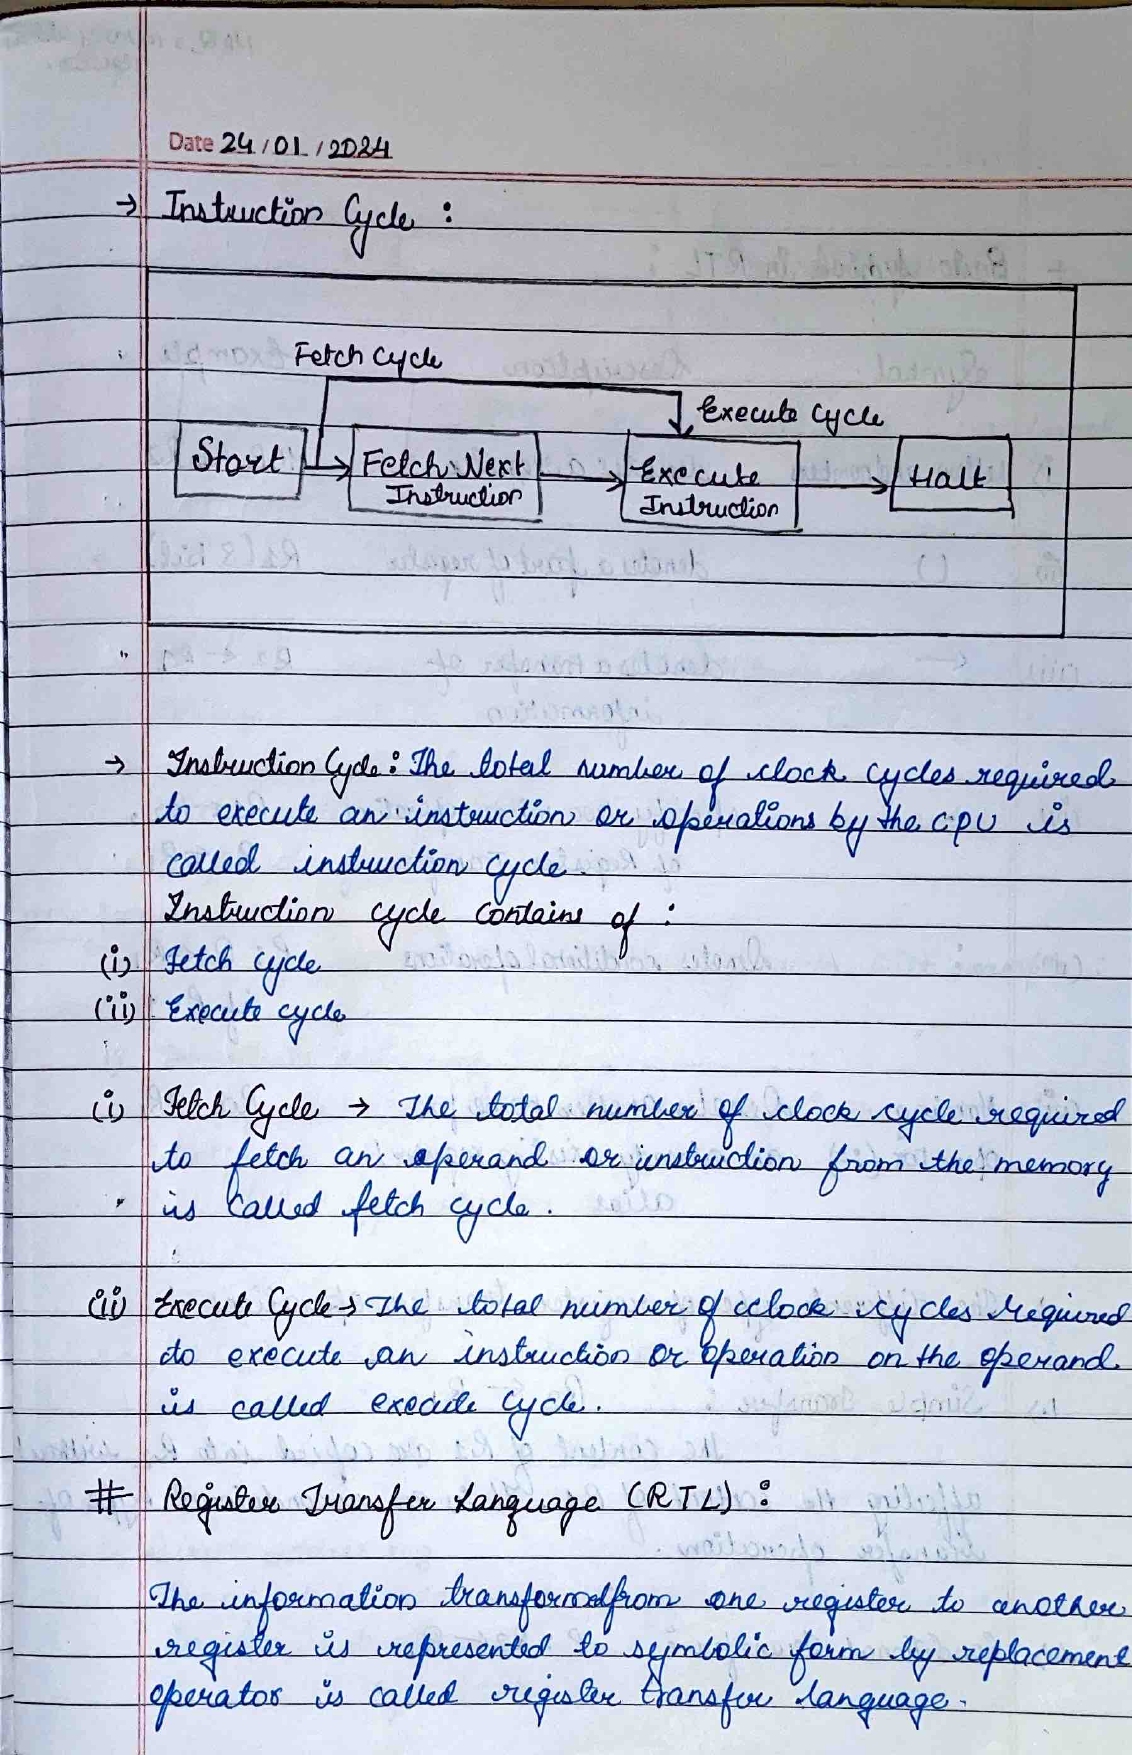 Date 24/01/2024
→ Instruction Cycle :
Fetch cycle
Execute cycle
Start
Fetch Next
Instruction
Execute
Instruction
Halt
→ Instruction Cycle : The total number of clock cycles required
to execute an instruction or operations by the CPU is
called instruction cycle.
Instruction cycle contains of :
(i) Fetch cycle
(ii) Execute cycle
(i) Fetch Cycle → The total number of clock cycle required
to fetch an operand or instruction from the memory
is called fetch cycle.
(ii) Execute Cycle → The total number of clock cycles required
to execute an instruction or operation on the operand
is called execute cycle.
# Register Transfer Language (RTL) :
The information transformed from one register to another
register is represented to symbolic form by replacement
operator is called register transfer language.